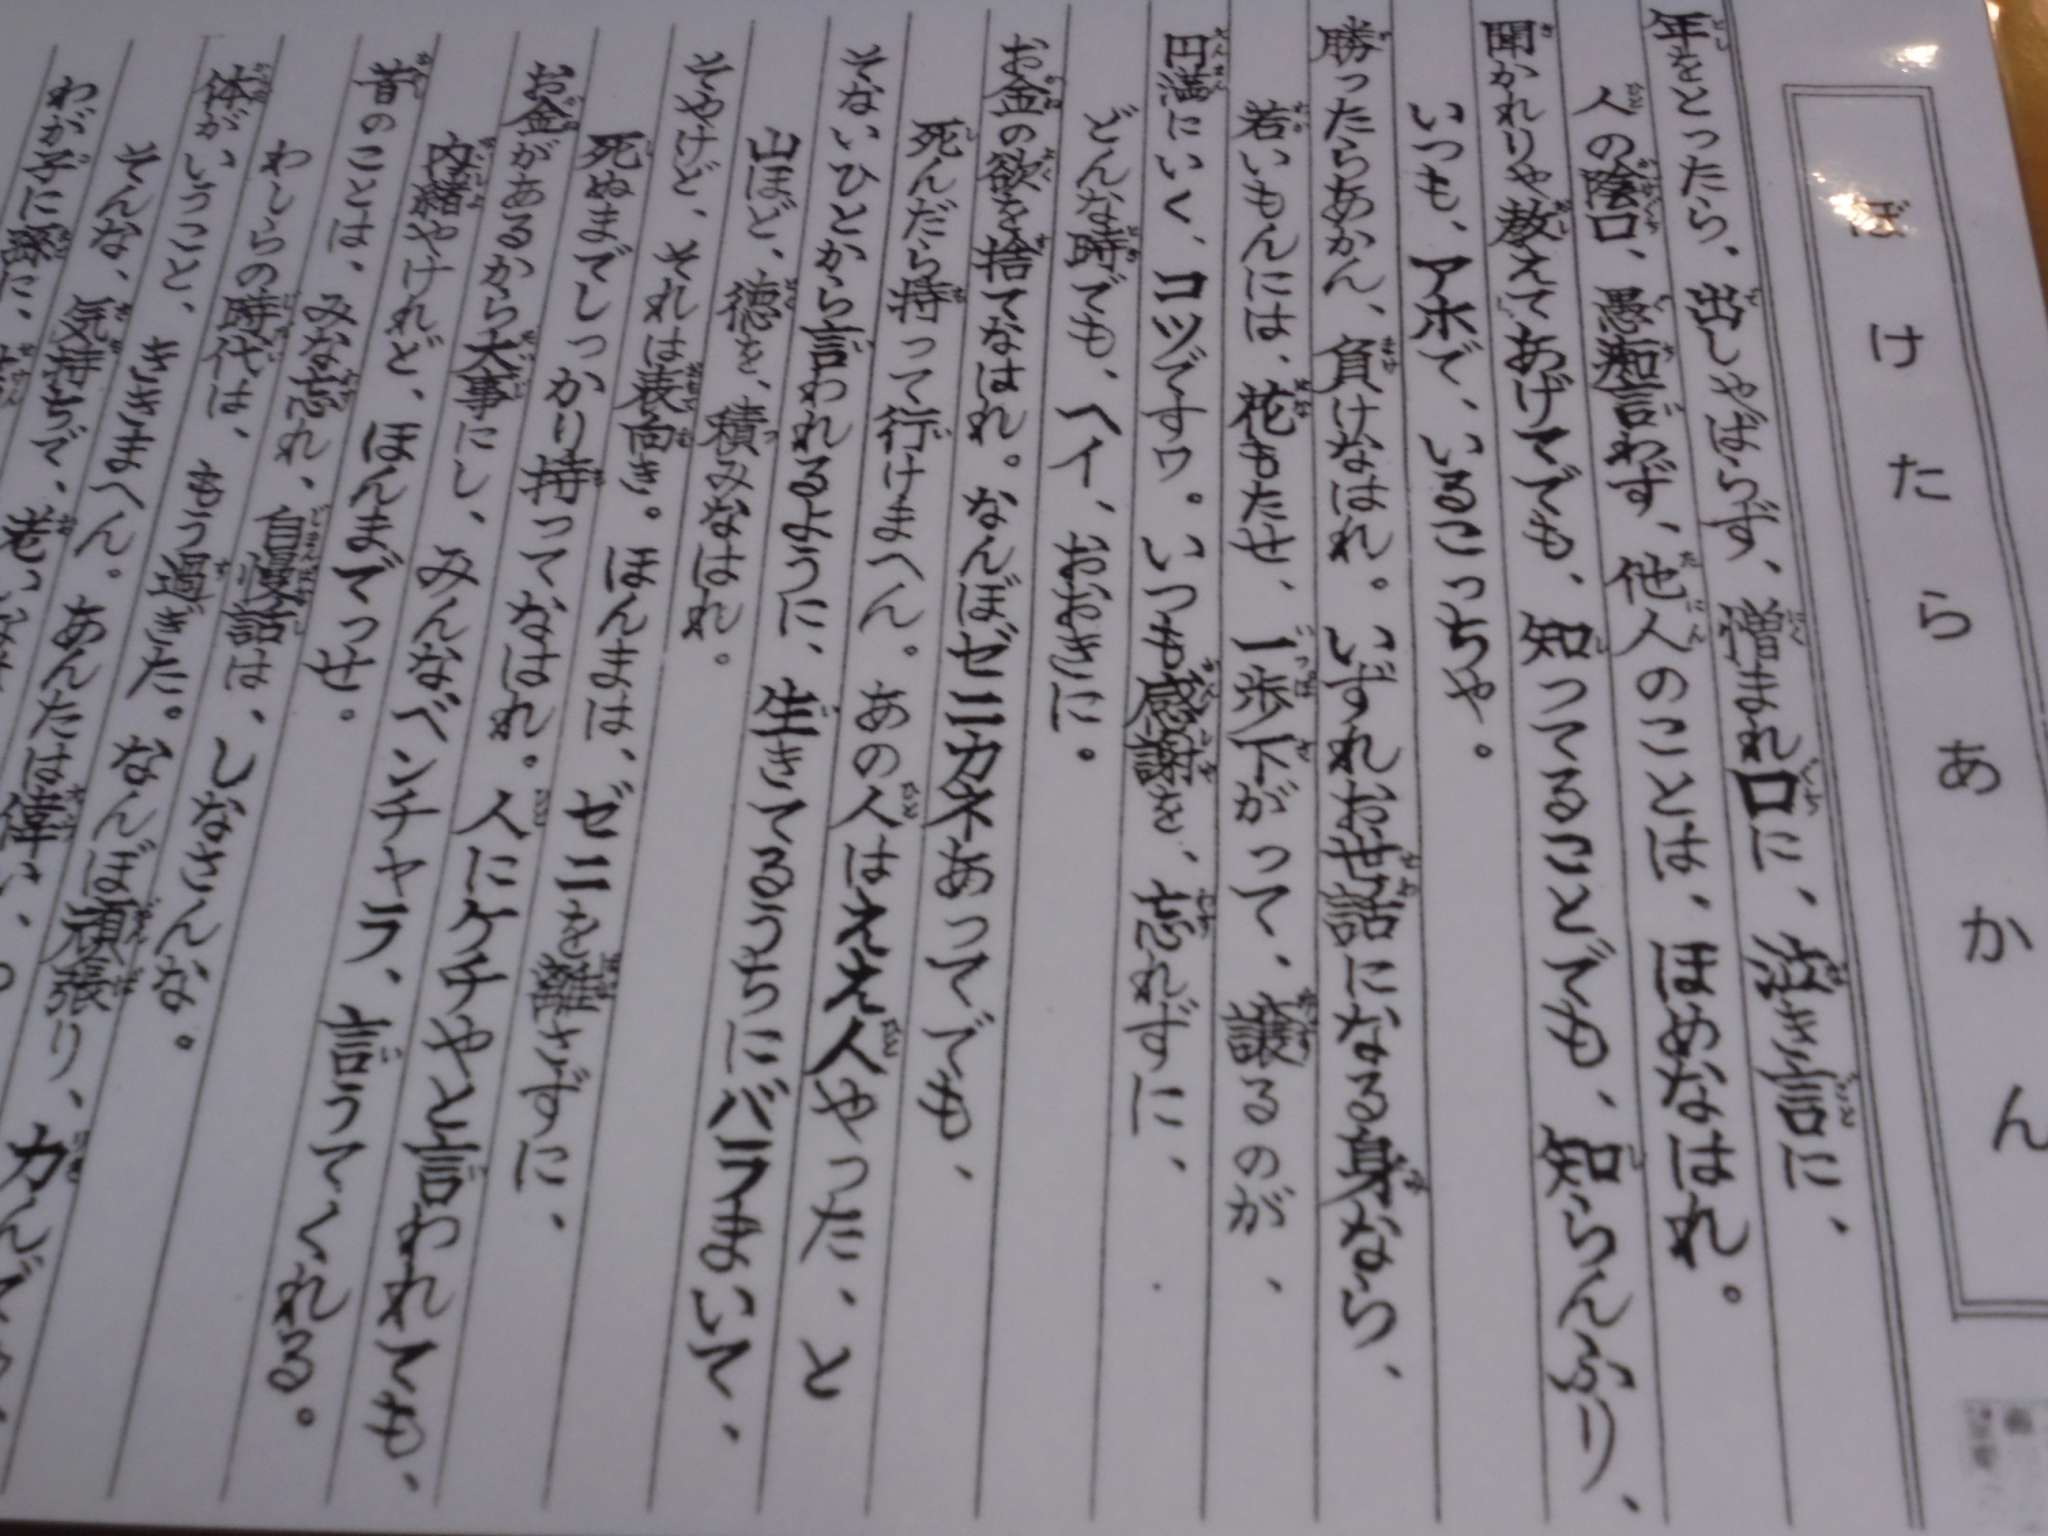 ぼけたらあかん
年をとったら、出しゃばらず、憎まれ口に、泣き言に、
人の陰口、愚痴言わず、他人のことは、ほめなはれ。
聞かれりゃ教えてあげてでも、知ってることでも、知らんふり、
いつも、アホで、いるこっちゃ。
勝ったらあかん、負けなはれ。いずれお世話になる身なら、
若いもんには、花もたせ、一歩下がって、譲るのが、
円満にいく、コツですヮ。いつも感謝を、忘れずに、
どんな時でも、ヘイ、おおきに。
お金の欲を捨てなはれ。なんぼゼニカネあってでも、
死んだら持って行けまへん。あの人はええ人やった、と
そないひとから言われるように、生きてるうちにバラまいて、
山ほど、徳を、積みなはれ。
そやけど、それは表向き。ほんまは、ゼニを離さずに、
死ぬまでしっかり持ってなはれ。人にケチやと言われても、
お金があるから大事にし、みんなベンチャラ、言うてくれる。
内緒やけれど、ほんまでっせ。
昔のことは、みな忘れ、自慢話は、しなさんな。
わしらの時代は、もう過ぎた。なんぼ頑張り、力んでも、
体がいうこと、ききまへん。あんたは偉い、
そんな、気持ちで、老い
わが子に孫に、